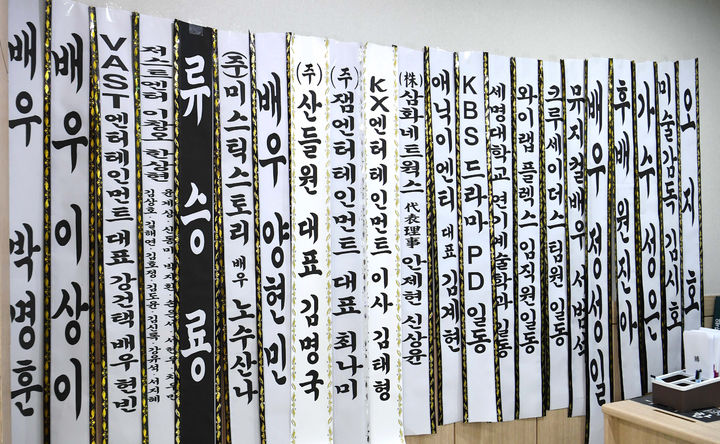 배우 박명훈
배우 이상이
VAST엔터테인먼트 대표 강건택 배우 현빈
저스트엔터
김상호 김해연 김호정 김도윤 김신록 서지혜
윤제상 신동미 박지환
류승룡
(주)미스틱스토리 배우 노수산나
배우 양현민
(주)산들원 대표 김명국
(주)잼엔터테인먼트 대표 최나미
KX엔터테인먼트 이사 김태형
(株)삼화네트웍스 代表理事 안제현 신상윤
애닉이엔티 대표 김계현
KBS 드라마 PD 일동
세명대학교 연기예술학과 일동
와이랩 플렉스 임직원 일동
크루세이더스팀원 일동
뮤지컬배우 서범석
배우 정성일
후배 원진아
가수 성은
미술감독 김시호
오지호